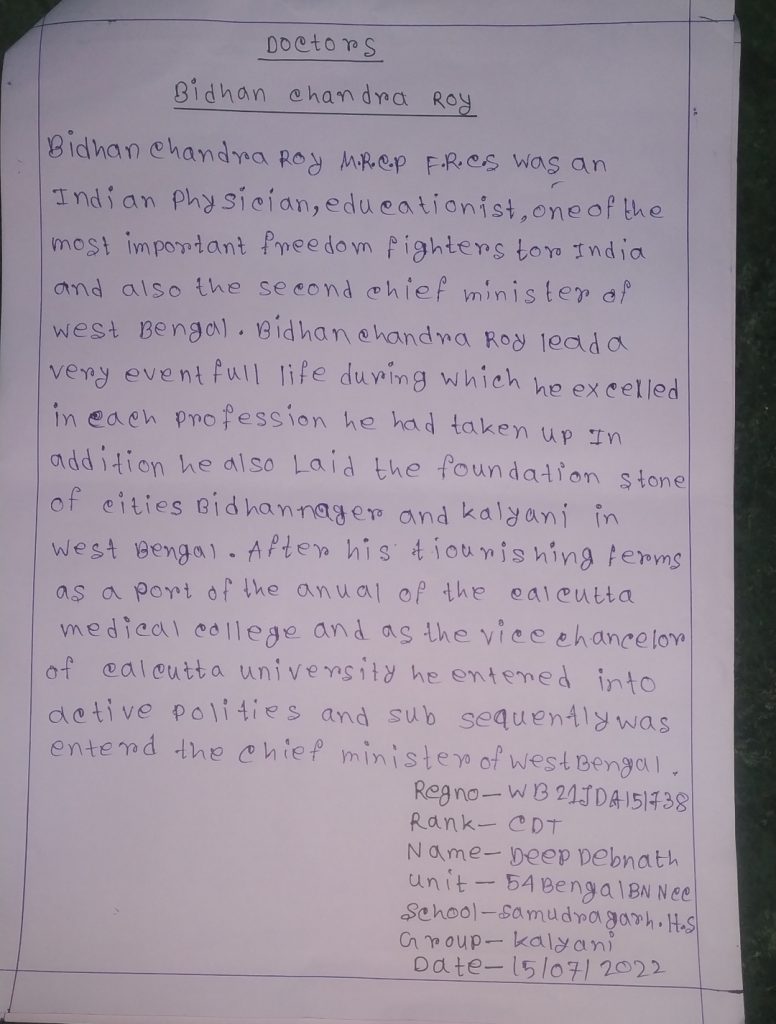 Doctors
Bidhan chandra Roy
Bidhan chandra Roy M.R.C.P F.R.C.S was an
Indian Physician, educationist, one of the
most important freedom fighters for India
and also the second chief minister of
west Bengal. Bidhan chandra Roy lead a
very event full life during which he excelled
in each profession he had taken up In
addition he also Laid the foundation stone
of cities Bidhannager and kalyani in
west Bengal. After his tiourishing terms
as a port of the anual of the calcutta
medical college and as the vice chancelor
of calcutta university he entered into
active polities and sub sequently was
enterd the chief minister of west Bengal.
Regno- WB21JDA151738
Rank- CDT
Name- Deep Debnath
unit - 54 Bengal BN Ncc
School- Samudragarh. H.S
Group- kalyani
Date- 15/07/2022